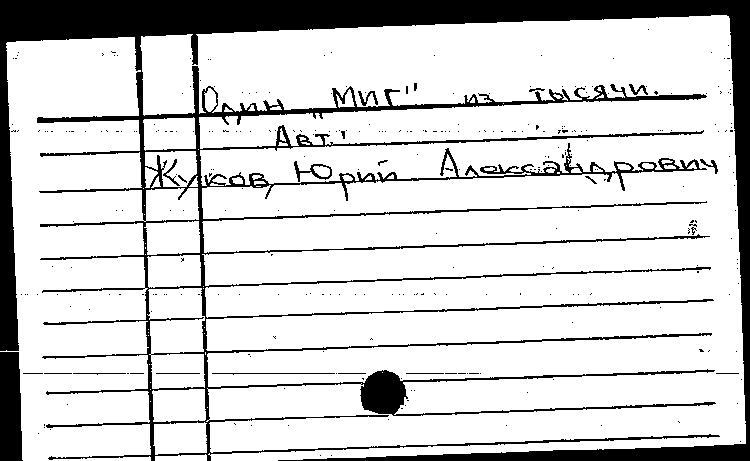 Один „МИГ" из тысячи.
Авт.:
Жуков, Юрий Александрович